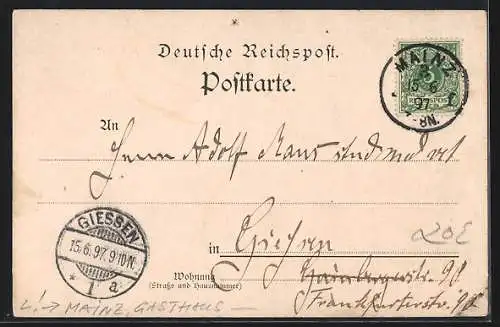 Deutsche Reichspost.
Postkarte.
MAINZ
15 6
97
7-8N.
5
REICHSPOST
An
Herrn Adolf Raus stud med vet
GIESSEN
15.6.97.9-10N.
* 1 a
in Giessen
20E
Wohnung
(Straße und Hausnummer)
L! → MAINZ, GASTHAUS —
Frankfurterstr.